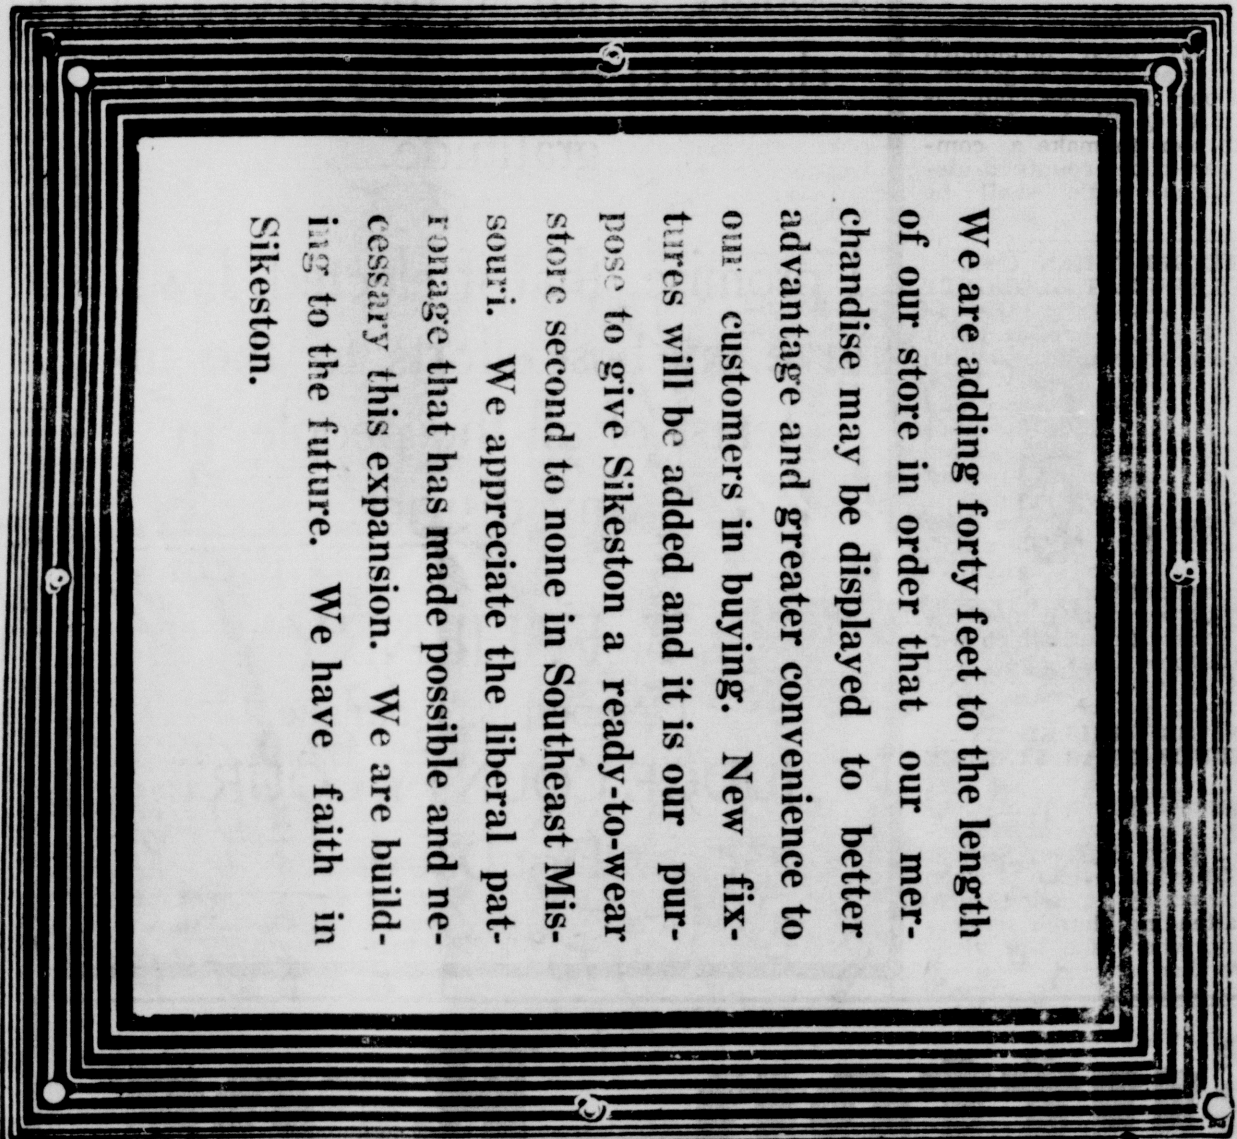 We are adding forty feet to the length
of our store in order that our mer-
chandise may be displayed to better
advantage and greater convenience to
our customers in buying. New fix-
tures will be added and it is our pur-
pose to give Sikeston a ready-to-wear
store second to none in Southeast Mis-
souri. We appreciate the liberal pat-
ronage that has made possible and ne-
cessary this expansion. We are build-
ing to the future. We have faith in
Sikeston.